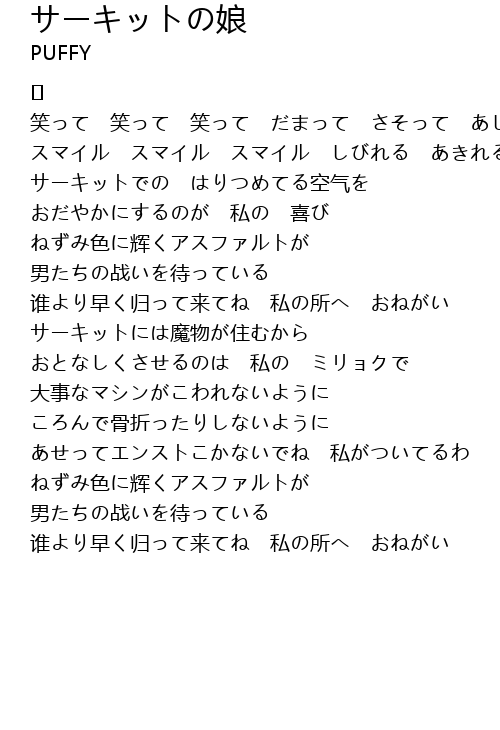 サーキットの娘
PUFFY
笑って　笑って　笑って　だまって　さそって　あし
スマイル　スマイル　スマイル　しびれる　あきれる
サーキットでの　はりつめてる空气を
おだやかにするのが　私の　喜び
ねずみ色に辉くアスファルトが
男たちの战いを待っている
谁より早く归って来てね　私の所へ　おねがい
サーキットには魔物が住むから
おとなしくさせるのは　私の　ミリョクで
大事なマシンがこわれないように
ころんで骨折ったりしないように
あせってエンストこかないでね　私がついてるわ
ねずみ色に辉くアスファルトが
男たちの战いを待っている
谁より早く归って来てね　私の所へ　おねがい